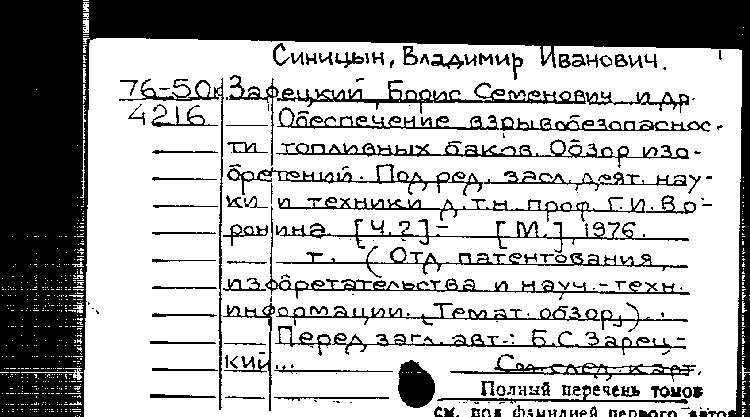 Синицын, Владимир Иванович.
76-50к Зарецкий, Борис Семенович и др.
4216 Обеспечение взрывобезопаснос-
ти топливных баков. Обзор изо-
бретений. Под ред. засл. деят. нау-
ки и техники д.т.н. проф. Г.И. Во-
ронина. [Ч.2] - [М.], 1976.
т. (Отд. патентования,
изобретательства и науч.-техн.
информации. "Темат. обзор").
Перед загл. авт.: Б.С. Зарец-
кий...
См. след. карт.
Полный перечень томов
см. под фамилией первого автора